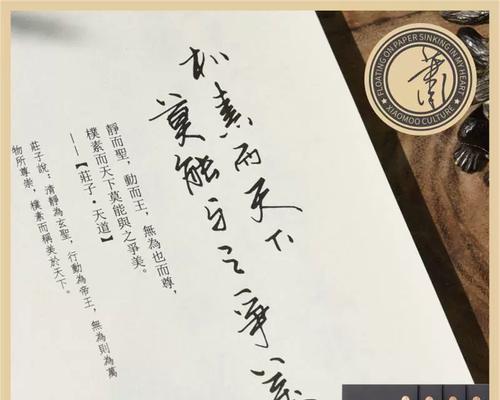 朴素而天下
莫能与之爭美
靜而聖，動而王，無為也而尊，
樸素而天下莫能與之爭美。
——【莊子·天道】
莊子說：清靜為玄聖，行動為帝王，無為則為萬
物所尊崇，樸素而稱美於天下。
FLOATING ON PAPER SINKING IN MY HEART
XIAOMOO CULTURE